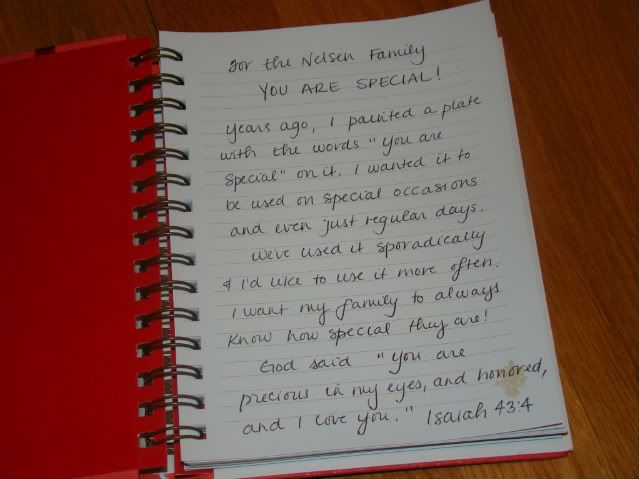 For the Nelsen Family
YOU ARE SPECIAL!
Years ago, I painted a plate
with the words "You are
Special" on it. I wanted it to
be used on special occasions
and even just regular days.
We've used it sporadically
& I'd like to use it more often.
I want my family to always
know how special they are!
God said "You are
precious in my eyes, and honored,
and I love you." Isaiah 43:4